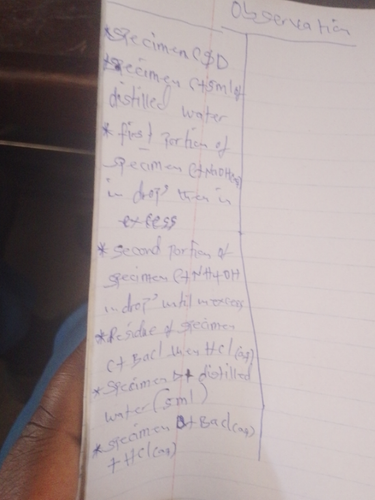 Observation
*specimen C$D
*specimen C+5ml of
distilled water
* first portion of
specimen C+NaOH(aq)
in drop² then in
excess
* second portion of
specimen C+NH4OH
in drop² until in excess
*Residue of specimen
C+Bacl then HCl(aq)
*specimen D+ distilled
water (5ml)
*specimen D+Bacl(aq)
+HCl(aq)